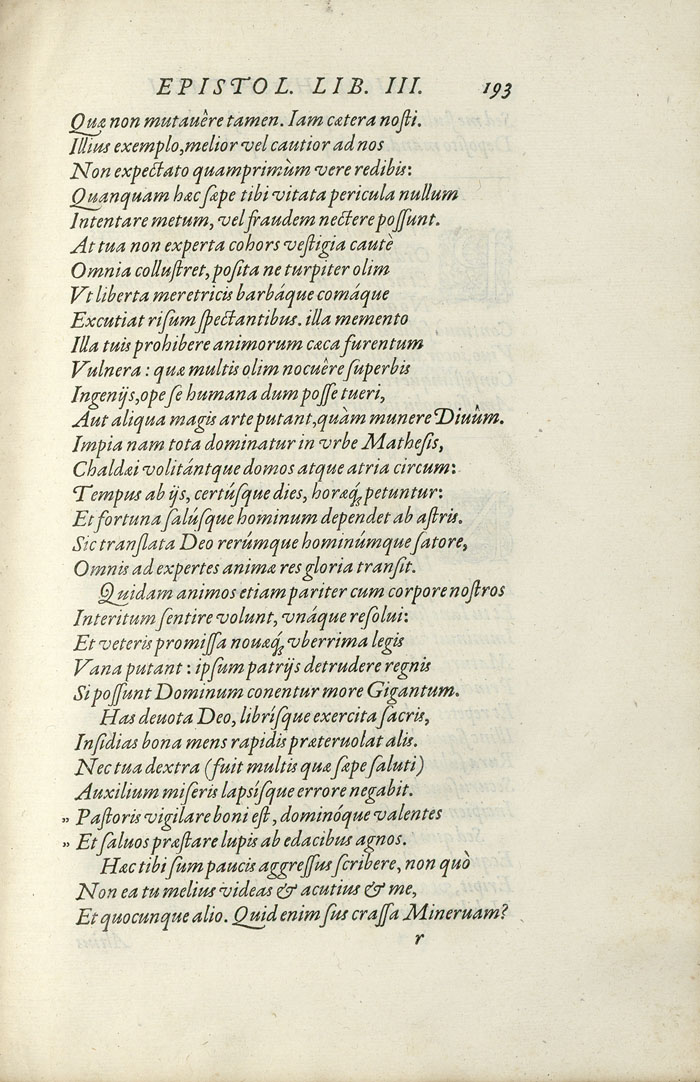 EPISTOL. LIB. III. 193
Quæ non mutauêre tamen. Iam cætera noſti.
Illius exemplo, melior vel cautior ad nos
Non expectato quamprimùm vere redibis:
Quanquam hæc ſæpe tibi vitata pericula nullum
Intentare metum, vel fraudem nectere poſſunt.
At tua non experta cohors veſtigia cautè
Omnia colluſtret, poſita ne turpiter olim
Vt liberta meretricis barbáque comáque
Excutiat riſum ſpectantibus. illa memento
Illa tuis prohibere animorum cæca furentum
Vulnera : quæ multis olim nocuêre ſuperbis
Ingenijs, ope ſe humana dum poſſe tueri,
Aut aliqua magis arte putant, quàm munere Diuûm.
Impia nam tota dominatur in vrbe Matheſis,
Chaldæi volitántque domos atque atria circum:
Tempus ab ijs, certúſque dies, horæq́; petuntur:
Et fortuna ſalúſque hominum dependet ab aſtris.
Sic tranſlata Deo rerúmque hominúmque ſatore,
Omnis ad expertes animæ res gloria tranſit.
Quidam animos etiam pariter cum corpore noſtros
Interitum ſentire volunt, vnáque reſolui:
Et veteris promiſſa nouæq́; vberrima legis
Vana putant : ipſum patrijs detrudere regnis
Si poſſunt Dominum conentur more Gigantum.
Has deuota Deo, libríſque exercita ſacris,
Inſidias bona mens rapidis præteruolat alis.
Nec tua dextra (fuit multis quæ ſæpe ſaluti)
Auxilium miſeris lapsiſque errore negabit.
„ Paſtoris vigilare boni eſt, dominóque valentes
„ Et ſaluos præſtare lupis ab edacibus agnos.
Hæc tibi ſum paucis aggreſſus ſcribere, non quò
Non ea tu melius videas & acutius & me,
Et quocunque alio. Quid enim ſus craſſa Mineruam?
r